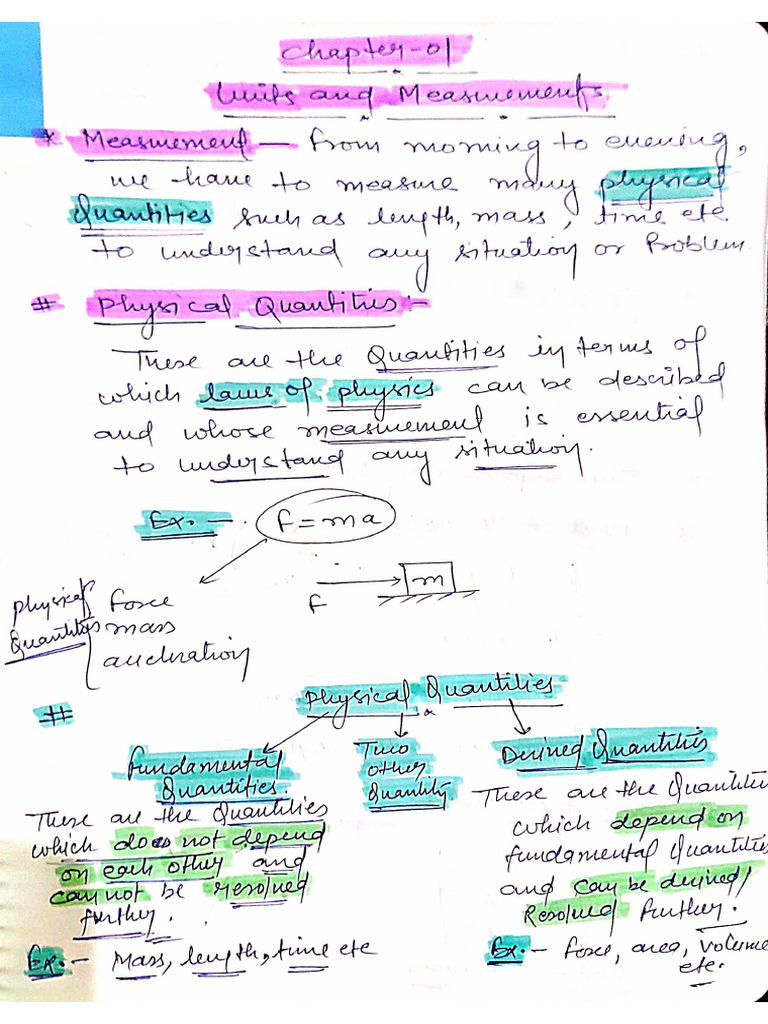 Chapter-01
Units and Measurements
* Measurement – From morning to evening,
we have to measure many physical
Quantities such as length, mass, time etc.
to understand any situation or Problem.
# Physical Quantities:-
These are the Quantities in terms of
which laws of physics can be described
and whose measurement is essential
to understand any situation.
Ex. – F = ma
F m
Physical Quantities
force
mass
acceleration
# Physical Quantities
Fundamental Quantities.
These are the Quantities
which does not depend
on each other and
can not be resolved
further.
Ex. – Mass, length, time etc
Two
other
Quantity
Derived Quantities
These are the Quantities
which depend on
fundamental Quantities
and can be derived/
Resolved further.
Ex. – force, area, volume
etc.